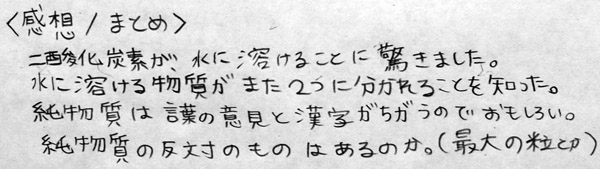 〈感想/まとめ〉
二酸化炭素が、水に溶けることに驚きました。
水に溶ける物質がまた2つに分かれることを知った。
純物質は言葉の意見と漢字がちがうのでおもしろい。
純物質の反対のものはあるのか。(最大の粒とか)